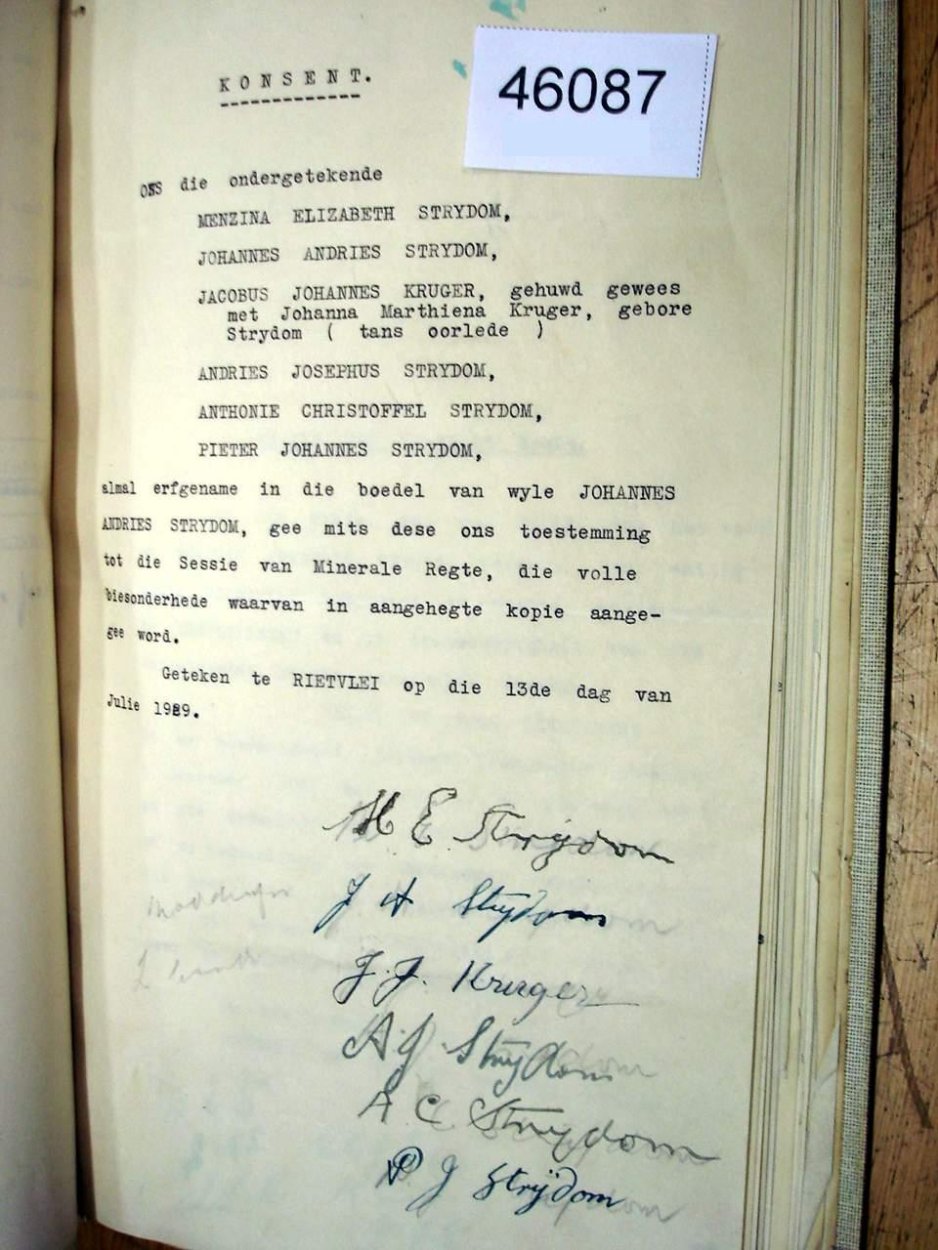 KONSENT.
46087
ONS die ondergetekende
MENZINA ELIZABETH STRYDOM,
JOHANNES ANDRIES STRYDOM,
JACOBUS JOHANNES KRUGER, gehuwd gewees
met Johanna Marthiena Kruger, gebore
Strydom ( tans oorlede )
ANDRIES JOSEPHUS STRYDOM,
ANTHONIE CHRISTOFFEL STRYDOM,
PIETER JOHANNES STRYDOM,
almal erfgename in die boedel van wyle JOHANNES
ANDRIES STRYDOM, gee mits dese ons toestemming
tot die Sessie van Minerale Regte, die volle
biesonderhede waarvan in aangehegte kopie aange-
gee word.
Geteken te RIETVLEI op die 13de dag van
Julie 1989.
M E Strydom
J A Strydom
J. J. Kruger
A J Strydom
A C Strydom
P J Strydom